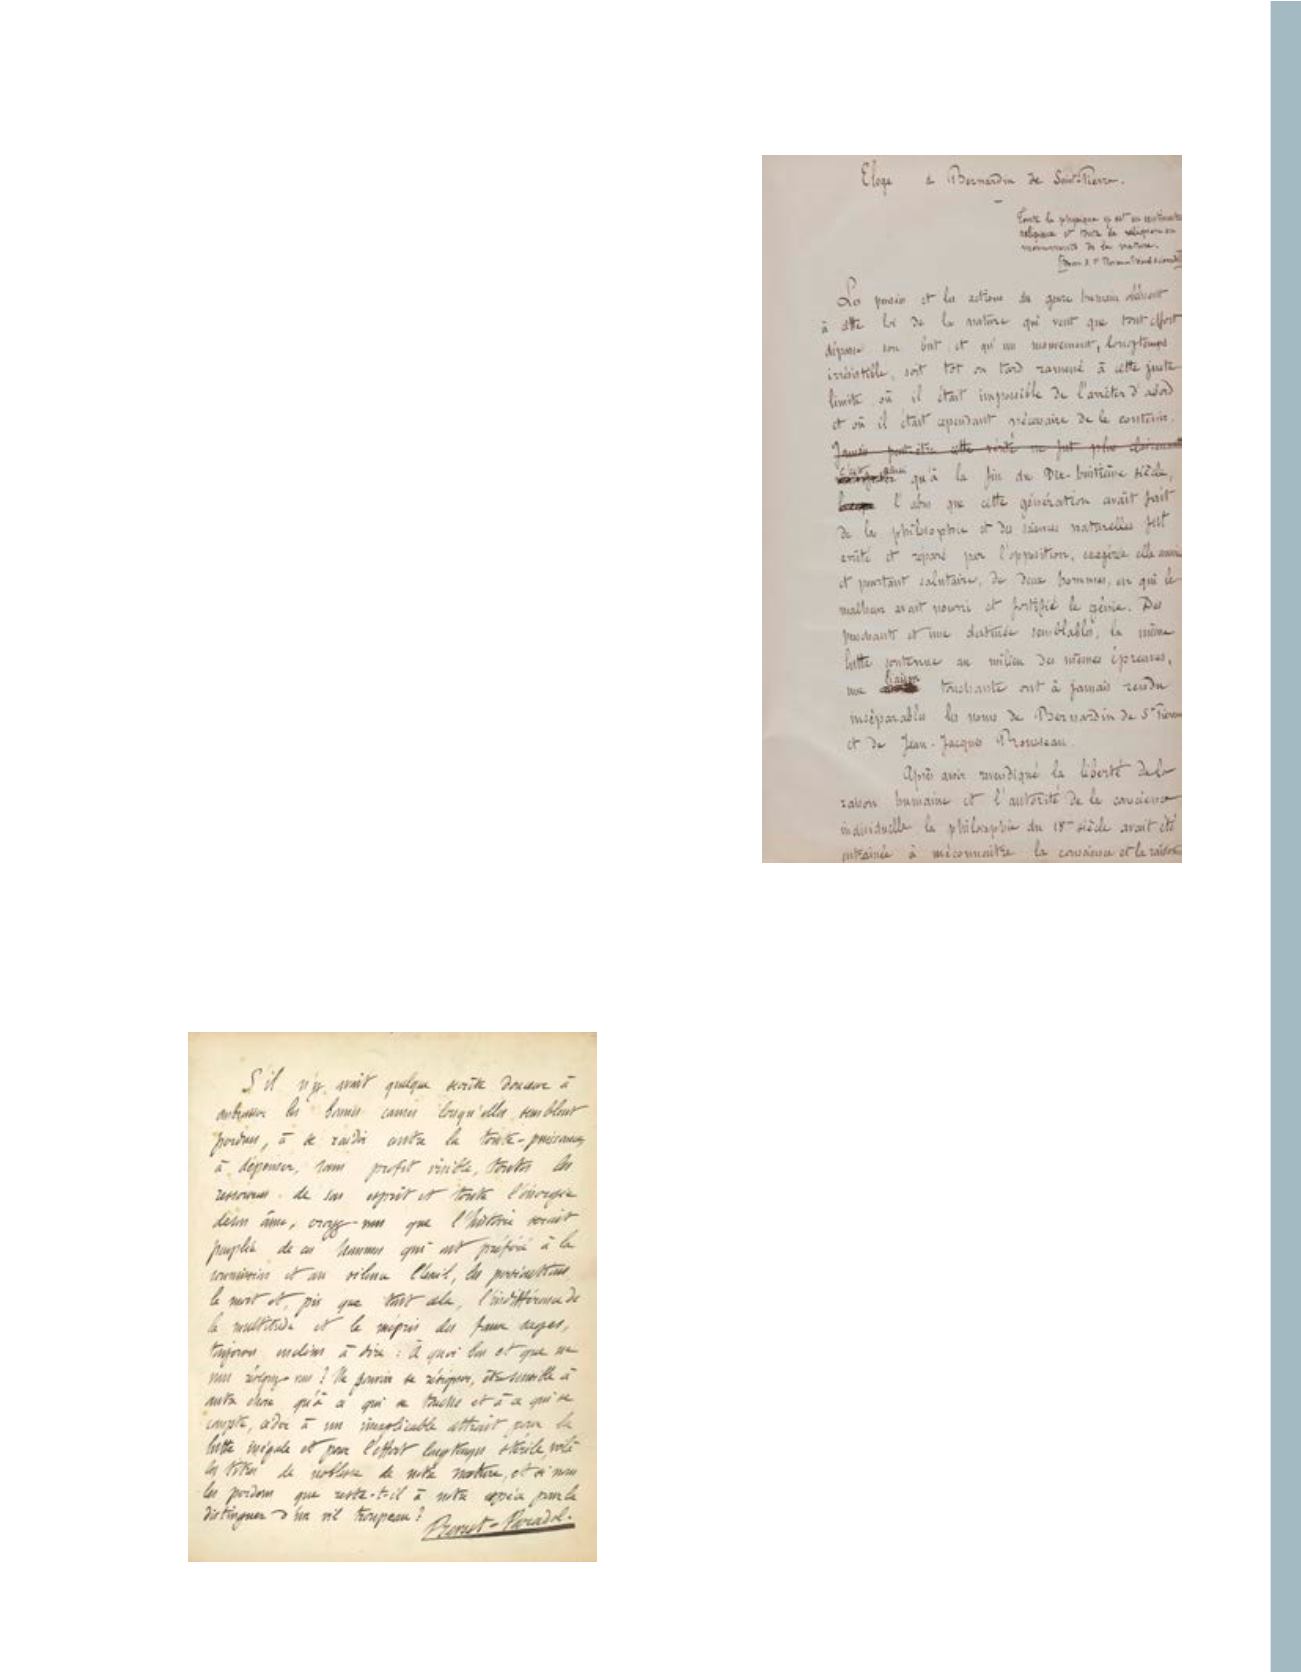 Eloge de Bernardin de Saint-Pierre.
Toute la physique est un sentiment
religieux et toute la religion un
de la nature.
et les actions du genre humain obéissent
à cette loi de la nature qui veut que tout effort
dépasse son but et qu'un mouvement, longtemps
irrésistible, soit tôt ou tard ramené à cette juste
limite où il était impossible de l'arrêter d'abord
et où il était cependant nécessaire de le contenir.
Jamais peut-être cette vérité ne fut plus clairement
c'est ainsi qu'à la fin du Dix-huitième siècle,
l'abus que cette génération avait fait
de la philosophie et des sciences naturelles fut
et réparé par l'opposition, exagérée elle aussi
et pourtant salutaire, de deux hommes, en qui le
malheur avait nourri et fortifié le génie. Des
penchants et une destinée semblables, la même
lutte soutenue au milieu des mêmes épreuves,
une liaison touchante ont à jamais rendu
inséparables les noms de Bernardin de St Pierre
et de Jean-Jacques Rousseau.
Après avoir revendiqué la liberté de la
raison humaine et l'autorité de la conscience
individuelle la philosophie du 18me siècle avait été
entrainée à méconnaitre la conscience et la raison
S'il n'y avait quelque secrète douceur à
embrasser les bonnes causes lorsqu'elles semblent
perdues, à se raidir contre la toute-puissance,
à dépenser, sans profit visible, toutes les
ressources de son esprit et toute l'énergie
de son âme, croyez-vous que l'histoire serait
peuplée de ces hommes qui ont préféré à la
soumission et au silence l'exil, les persécutions
la mort et, pis que tout cela, l'indifférence de
la multitude et le mépris des faux sages,
toujours enclins à dire : à quoi bon et que ne
vous résignez-vous ? Ne pouvoir se résigner, être sensible à
autre chose qu'à ce qui se touche et à ce qui se
compte, céder à un inexplicable attrait pour la
lutte inégale et pour l'effort longtemps stérile, voilà
les titres de noblesse de notre nature, et si nous
les perdons que reste-t-il à notre espèce pour la
distinguer d'un vil troupeau ?
Prevost-Paradol.